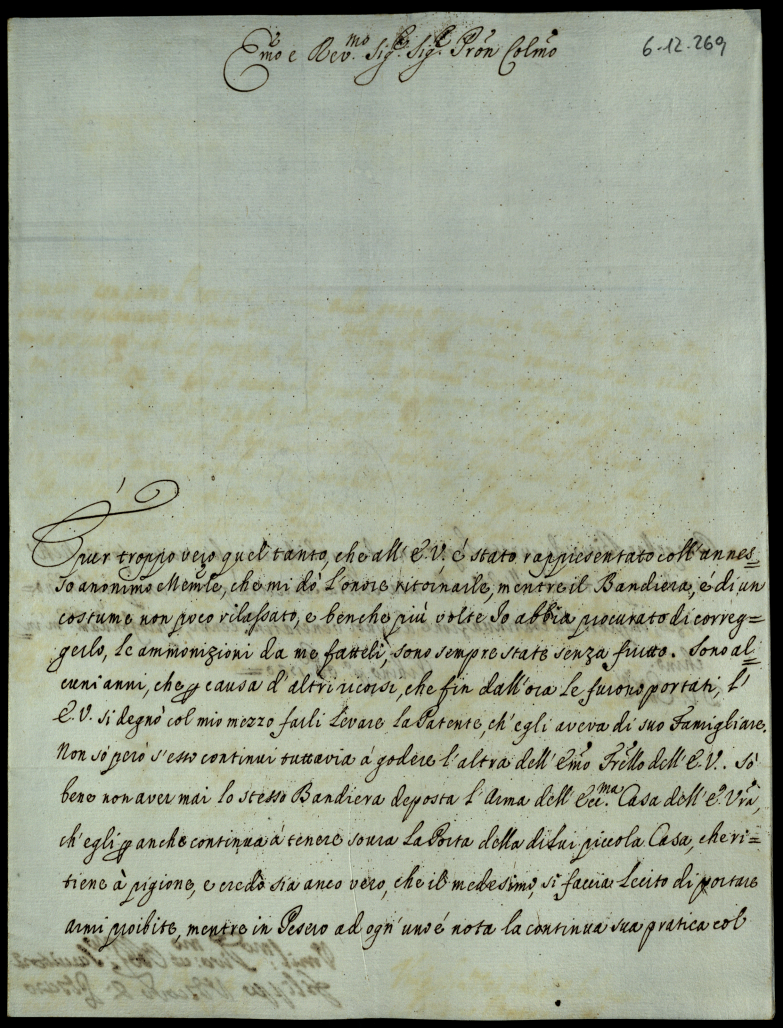 6-12.269
Emo e Rev.mo Sig.r Sig.r Pron Colmo
É pur troppo vero quel tanto, che all' E.V. é stato rappresentato coll' annes=
so anonimo Memle, che mi dò l'onore ritornarle, mentre il Bandiera, é di un
costume non poco rilassato, e benche più volte Io abbia procurato di correg=
gerlo, le ammonizioni da me fatteli, sono sempre state senza frutto. Sono al=
cuni anni, che p causa d'altri ricorsi, che fin dall'ora le furono portati, l'
E.V. si degnò col mio mezzo farli levare la Patente, ch'egli aveva di suo Famigliare.
Non só però s'esso continui tuttavia á godere l'altra dell' Emo Frello dell' E.V. . Só
bene non aver mai lo stesso Bandiera deposta l'Arma dell' Ecc.ma Casa dell' E. Vra,
ch'egli p anche continua á tenere sovra la Porta della di lui piccola Casa, che ri=
tiene à pigione, e credo sia anco vero, che il medesimo, si faccia lecito di portare
armi proibite, mentre in Pesaro ad ogn'uno é nota la continua sua pratica col